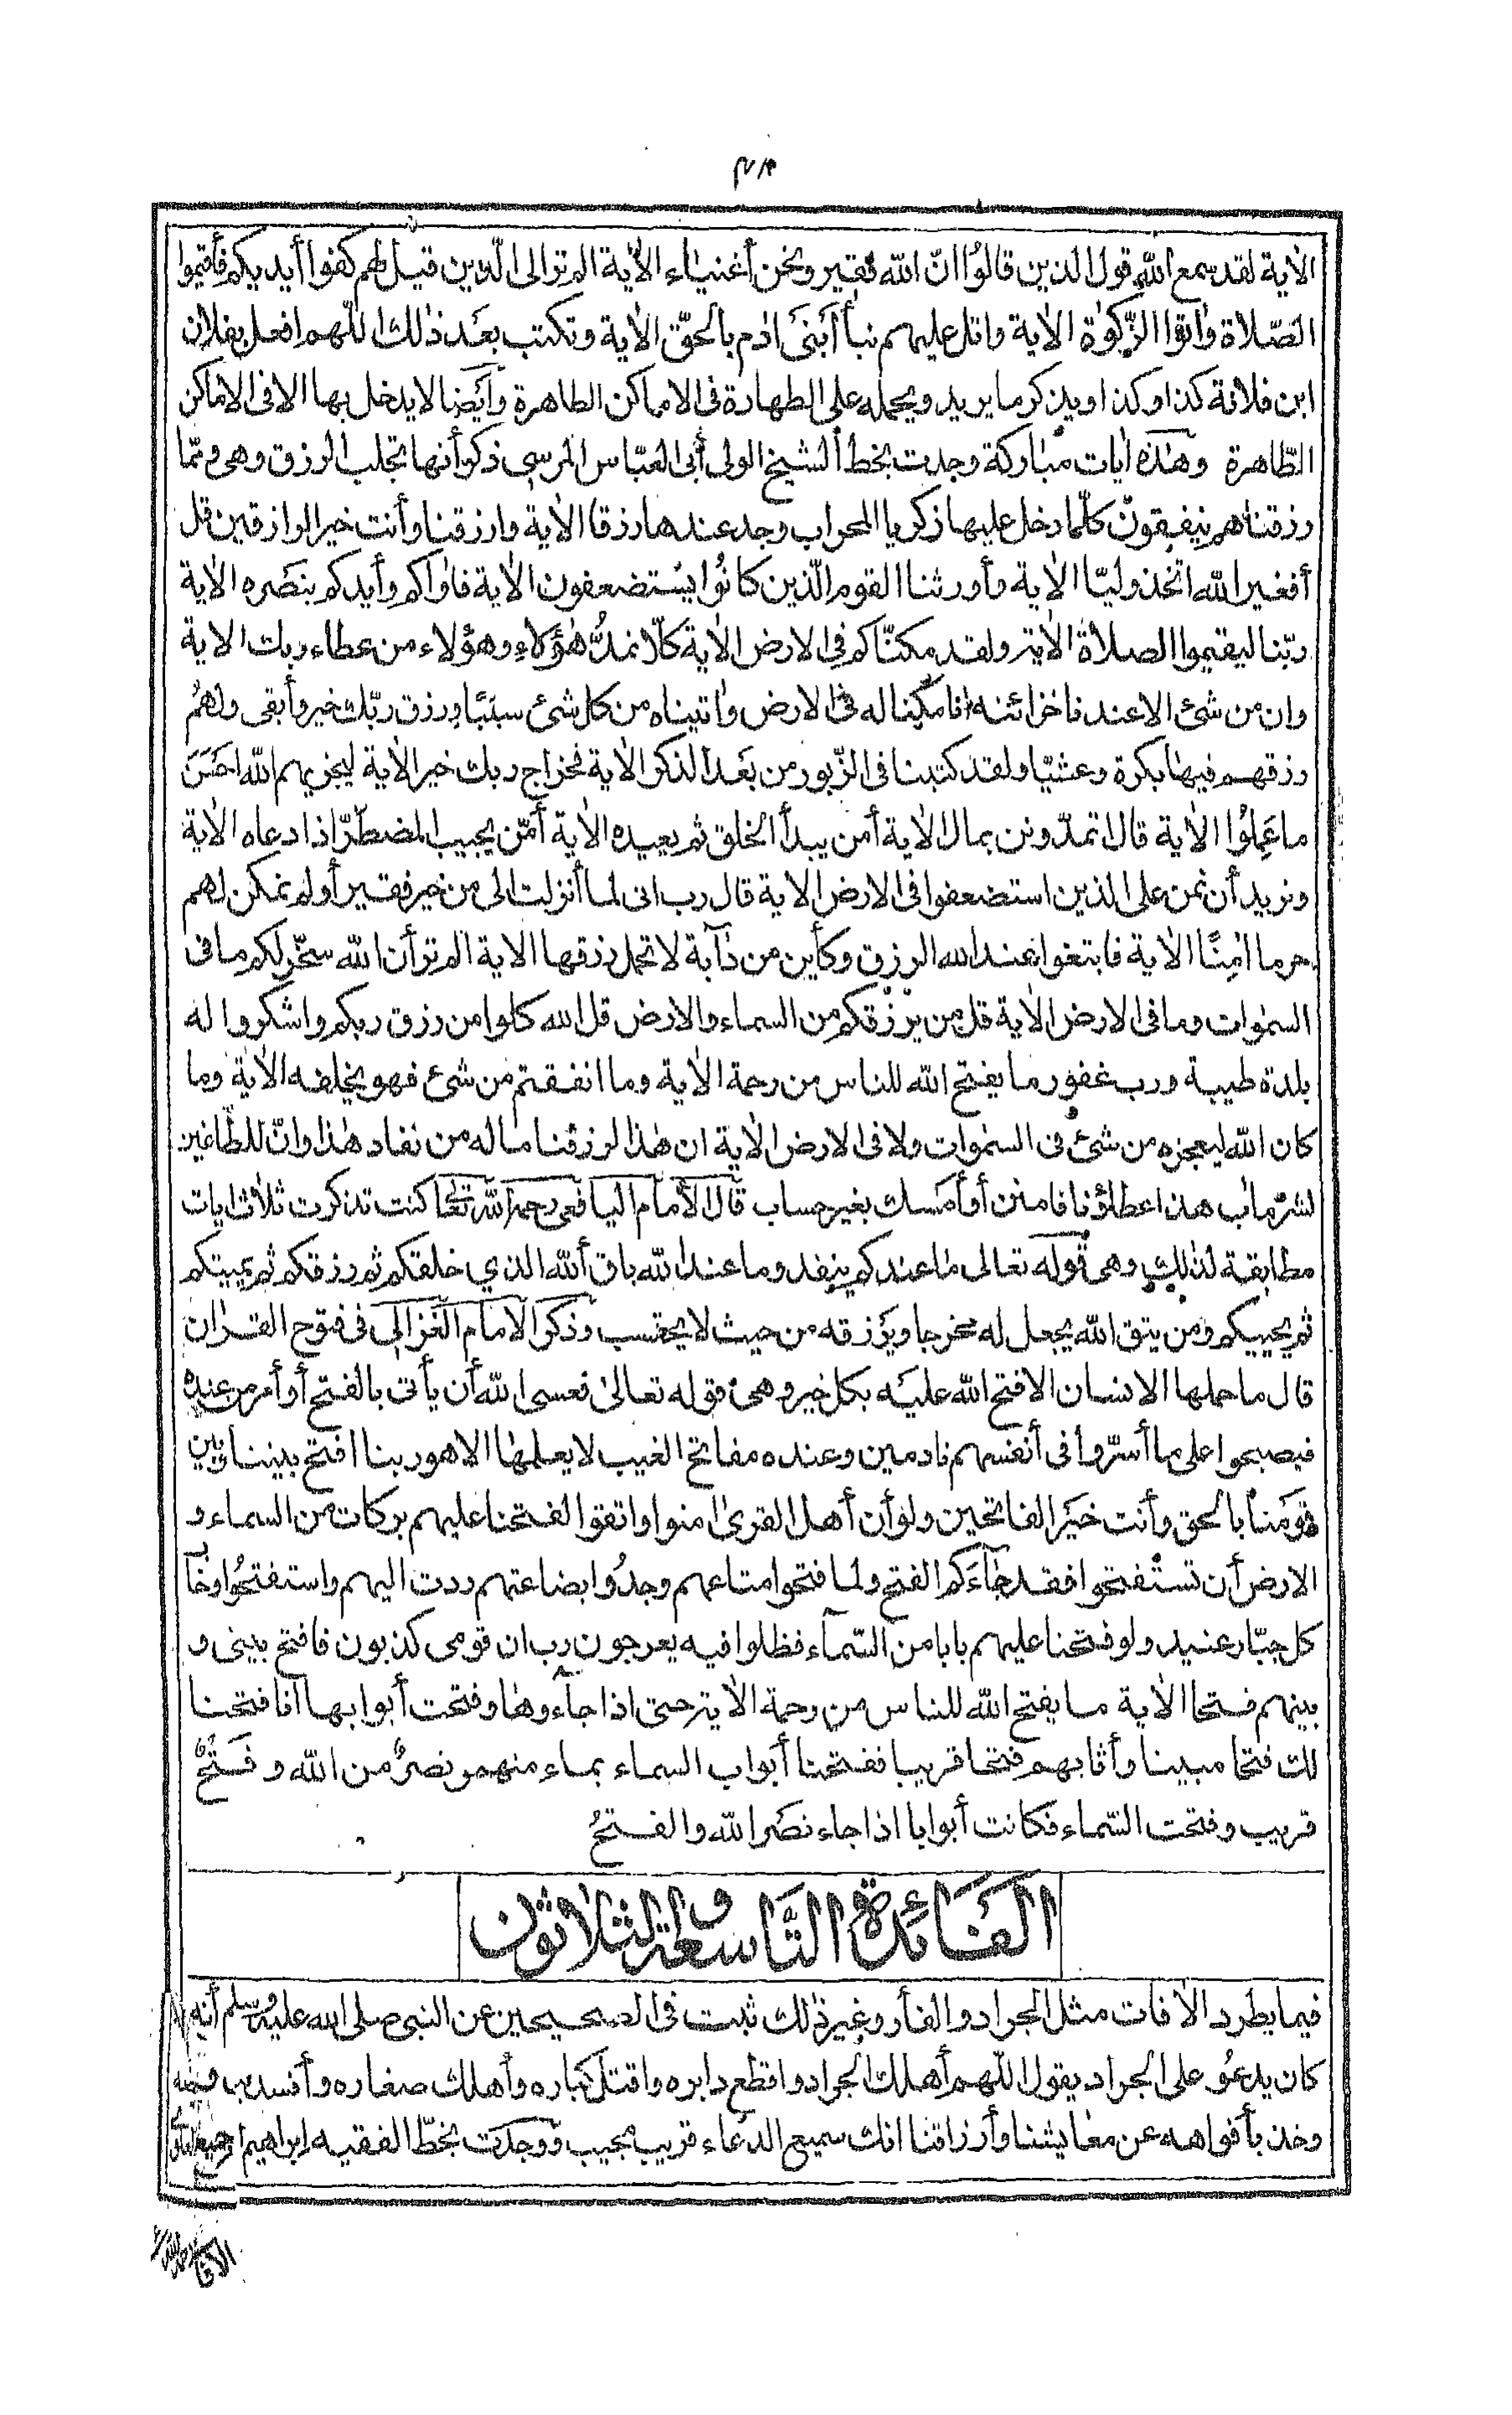 الاٰية لقد سمع الله قول الذين قالوُا انّ الله فقير ونحن أغنياء الاٰية الم تر الى الّذين قيل لهم كفوا أيديكم فأقيموا
الصّلاة واٰتوا الزّكوٰة الاٰية واتل عليهم نبأ أبَنَىْ اٰدم بالحقّ الاٰية وتكتب بعَد ذٰلك اللّهم افعل بفلان
ابن فلانة كذا وكذا ويذكر ما يريد ويحمله على الطهارة فى الاماكن الطاهرة وأيَضا لا يدخل بها الا فى الاماكن
الطّاهرة وهذه اٰيات مباركة وجدت بخط الشيخ الولى أبى العبّاس المرسى ذكر أنها تجلب الرزق وهى وممّا
رزقناهم ينفقونْ كلّما دخل عليها زكريا المحراب وجد عندها رزقا الاٰية وارزقنا وأنت خير الرازقين قل
أفغير الله اتخذ وليّا الاٰية وأورثنا القوم الّذين كانُوا يسْتضعفون الاٰية فاٰواكم وأيدكم بنصَره الاٰية
ربّنا ليقيموا الصلاة الاٰية ولقد مكنّاكم فى الارض الاٰية كلّا نمدُّ هٰؤلاءِ وهٰؤلاء من عطاء ربك الاٰية
وان من شئ الا عندنا خزائنه انا مكّنا له فى الارض واٰتيناه من كل شئ سبَبًا ورزق ربّك خير وأبقى ولهُم
رزقهم فيهٰا بكرة وعشيّا ولقد كتبنا فى الزّبور من بعَد الذكر الاٰية فخراج ربك خير الاٰية ليجزيهم الله احسَن
ما عَمِلوُا الاٰية قال اتمدّونن بمال الاٰية أمن يبدأ الخلق ثم يعيده الاٰية أمّن يجيب المضطرّ اذا دعاه الاٰية
ونريد أن نمن على الذين استضعفوا فى الارض الاٰية قال رب انى لما أنزلت الى من خير فقير أولم نمكن لهم
حرما اٰمِنًا الاٰية فابتغوا عند الله الرزق وكأين من دآبة لا تحمل رزقها الاٰية الم تر أن الله سخّر لكم ما فى
السمٰوات وما فى الارض الاٰية قل من يرْزقكم من السماء والارض قل الله كلوا من رزق ربكم واشكروا له
بلدة طيبة ورب غفور ما يفتح الله للناس من رحمة الاٰية وما انفقتم من شئ فهو يخلفه الاٰية وما
كان الله ليعجزه من شئ فى السمٰوات ولا فى الارض الاٰية ان هٰذا لرزقنا ما له من نفاد هٰذا وانّ للطّاغين
لشرّ ماٰب هذا عطاؤنا فامنن أو أمسك بغير حساب قال الأمام اليافعى رحمه الله تعالى كنت تذكرت ثلاث اٰيات
مطابقة لذٰلك وهى قوله تعالى ما عندكم ينفد وما عند الله باق أللّه الذي خلقكم ثم رزقكم ثم يميتكم
ثم يحييكم ومن يتق الله يجعل له مخرجا ويرزقه من حيث لا يحتسب وذكر الامام الغزالى فى فتوح القراٰن
قال ما حملها الانسان الا فتح الله عليَه بكل خير وهى قوله تعالىٰ فعسى الله أن يأتى بالفتح أو أمر من عنده
فيصبحوا على ما أسرّوا فى أنفسهم نادمين وعنده مفاتح الغيب لا يعلمها الا هو ربنا افتح بيننا وبين
قومَنا بالحق وأنت خيَر الفاتحين ولو أن أهل القرى اٰمنوا واتقوا لفتحنا عليهم بركات من السماء و
الارض أن تستفتحوا فقد جآءكم الفتح ولما فتحوا متاعهم وجدُوا بضاعتهم ردت اليهم واستفتحُوا وخاب
كل جبّار عنيد ولو فتحنا عليهم بابا من السّمآء فظلوا فيه يعرجون رب ان قومى كذبون فافتح بينى و
بينهم فتحا الاٰية ما يفتح الله للناس من رحمة الاٰية حتى اذا جآءوها وفتحت أبوابها انا فتحنا
لك فتحا مبينا وأثابهم فتحا قريبا ففتحنا أبواب السماء بماء منهمر نصرٌ من الله وفَتحٌ
قريب وفتحت السّماء فكانت أبوابا اذا جاء نصَر الله والفتحُ
الفَائدة التَّاسعة والثلاثون
فيما يطرد الاٰفات مثل الجراد والفأر وغير ذٰلك ثبت فى الصحيحين عن النبى صلى الله عليه وسلم أنه
كان يدعُو على الجراد يقول اللّهم أهلك الجراد واقطع دابره واقتل كباره وأهلك صغاره وأفسد بيضه
وخذ بأفواهه عن معايشنا وأرزاقنا انك سميع الدعاء قريب مجيب ووجدت بخطّ الفقيه ابراهيم